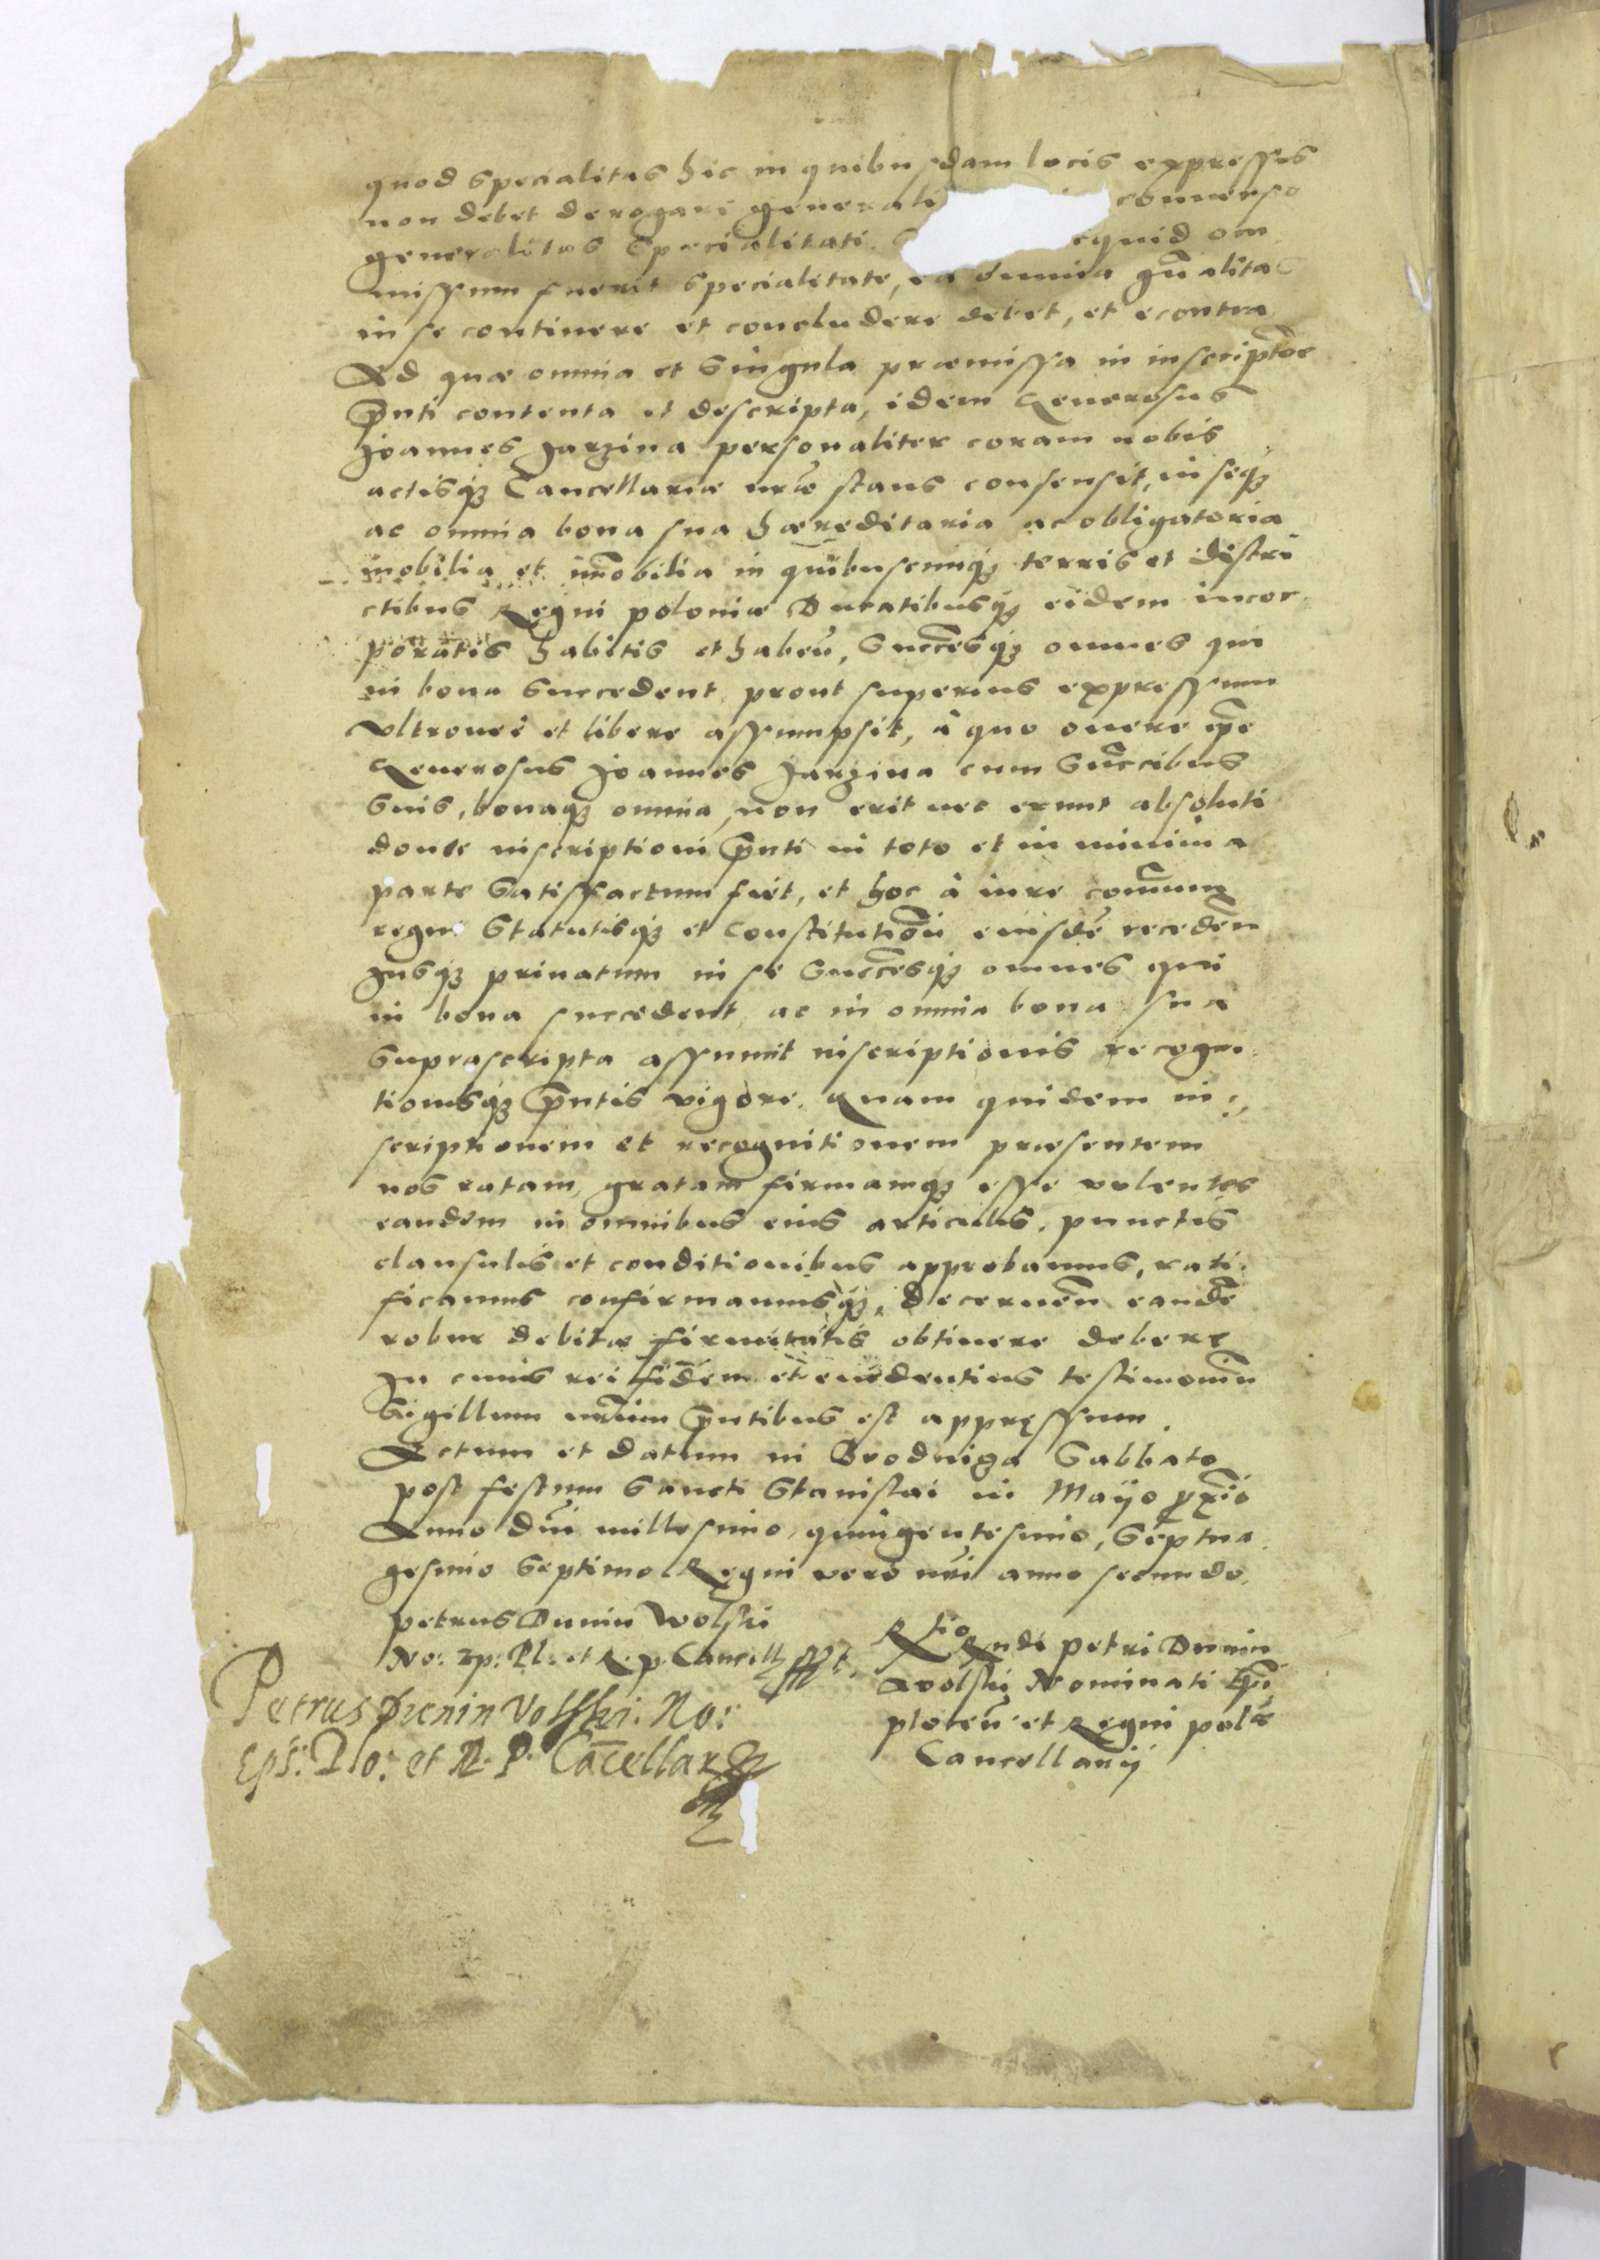 quod specialitas hic in quibusdam locis expressas
non debet derogare generali conuerso
generalitas Specialitati equid om
missum fuerit specialitate, ea omnia gnalitas
in se continere et concludere debet, et econtra
Ad quæ omnia et singula præmissa in inscriptōe
pñti contenta et descripta, idem Generosus
Joannes Jarzina personaliter coram nobis
actisq3 Cancellariæ nræ stans consensit, in seq3
ac omnia bona sua hæreditaria ac obligatoria
mobilia et im̄obilia in quibuscunq3 terris et distri
ctibus Regni poloniæ Ducatibusq3 eidem incor
poratis habitis et habeñ, Succēsq3 omnes qui
in bona succedent prout superius expressum
Vltroneè et libere assumpsit, à quo onere ip̄e
Generosus Joannes Jarzina cum Succ̄cibus
suis, bonaq3 omnia, non erit nec erunt absoluti
donec inscriptioni pñti in toto et in minima
parte satisfactum fiet, et hoc à iure com̄uni
regni Statutisq3 et Constitutiōn eiusdē recedeñ
Jusq3 priuatum in se Succēsq3 omnes qui
in bona succedent ac in omnia bona sua
suprascripta assumit inscriptionis recogni
tionisq3 pñtis vigore. Quam quidem in
scriptionem et recognitionem præsentem
nos ratam, gratam firmamq3 esse volentes
eandem in omnibus eius articulis, punctis
clausulis et conditionibus approbamus, rati
ficamus confirmamusq3, Decerneñ eandē
robur debitæ firmitatis obtinere debere
In cuius rei fidem et euidentius testimoniū
Sigillum nrum pñtibus est appressum.
Actum et datum in Brodniga Sabbato
post festum Sancti Stanislai in Mayo pxīo
Anno Dñi millesimo quingentesimo, Septua
gesimo septimo Regni vero nri anno secundo.
petrus Dunin Wolski
No: Ep: Pl: et R. p. Cancell sspt.
Petrus Dunin Volski. No:
Eps: Plo: et R. P. Cācellar
Rtio Rndi petri Dunin
Wolski Nominati Epi
plocen̄ et Regni polæ
Cancellarij